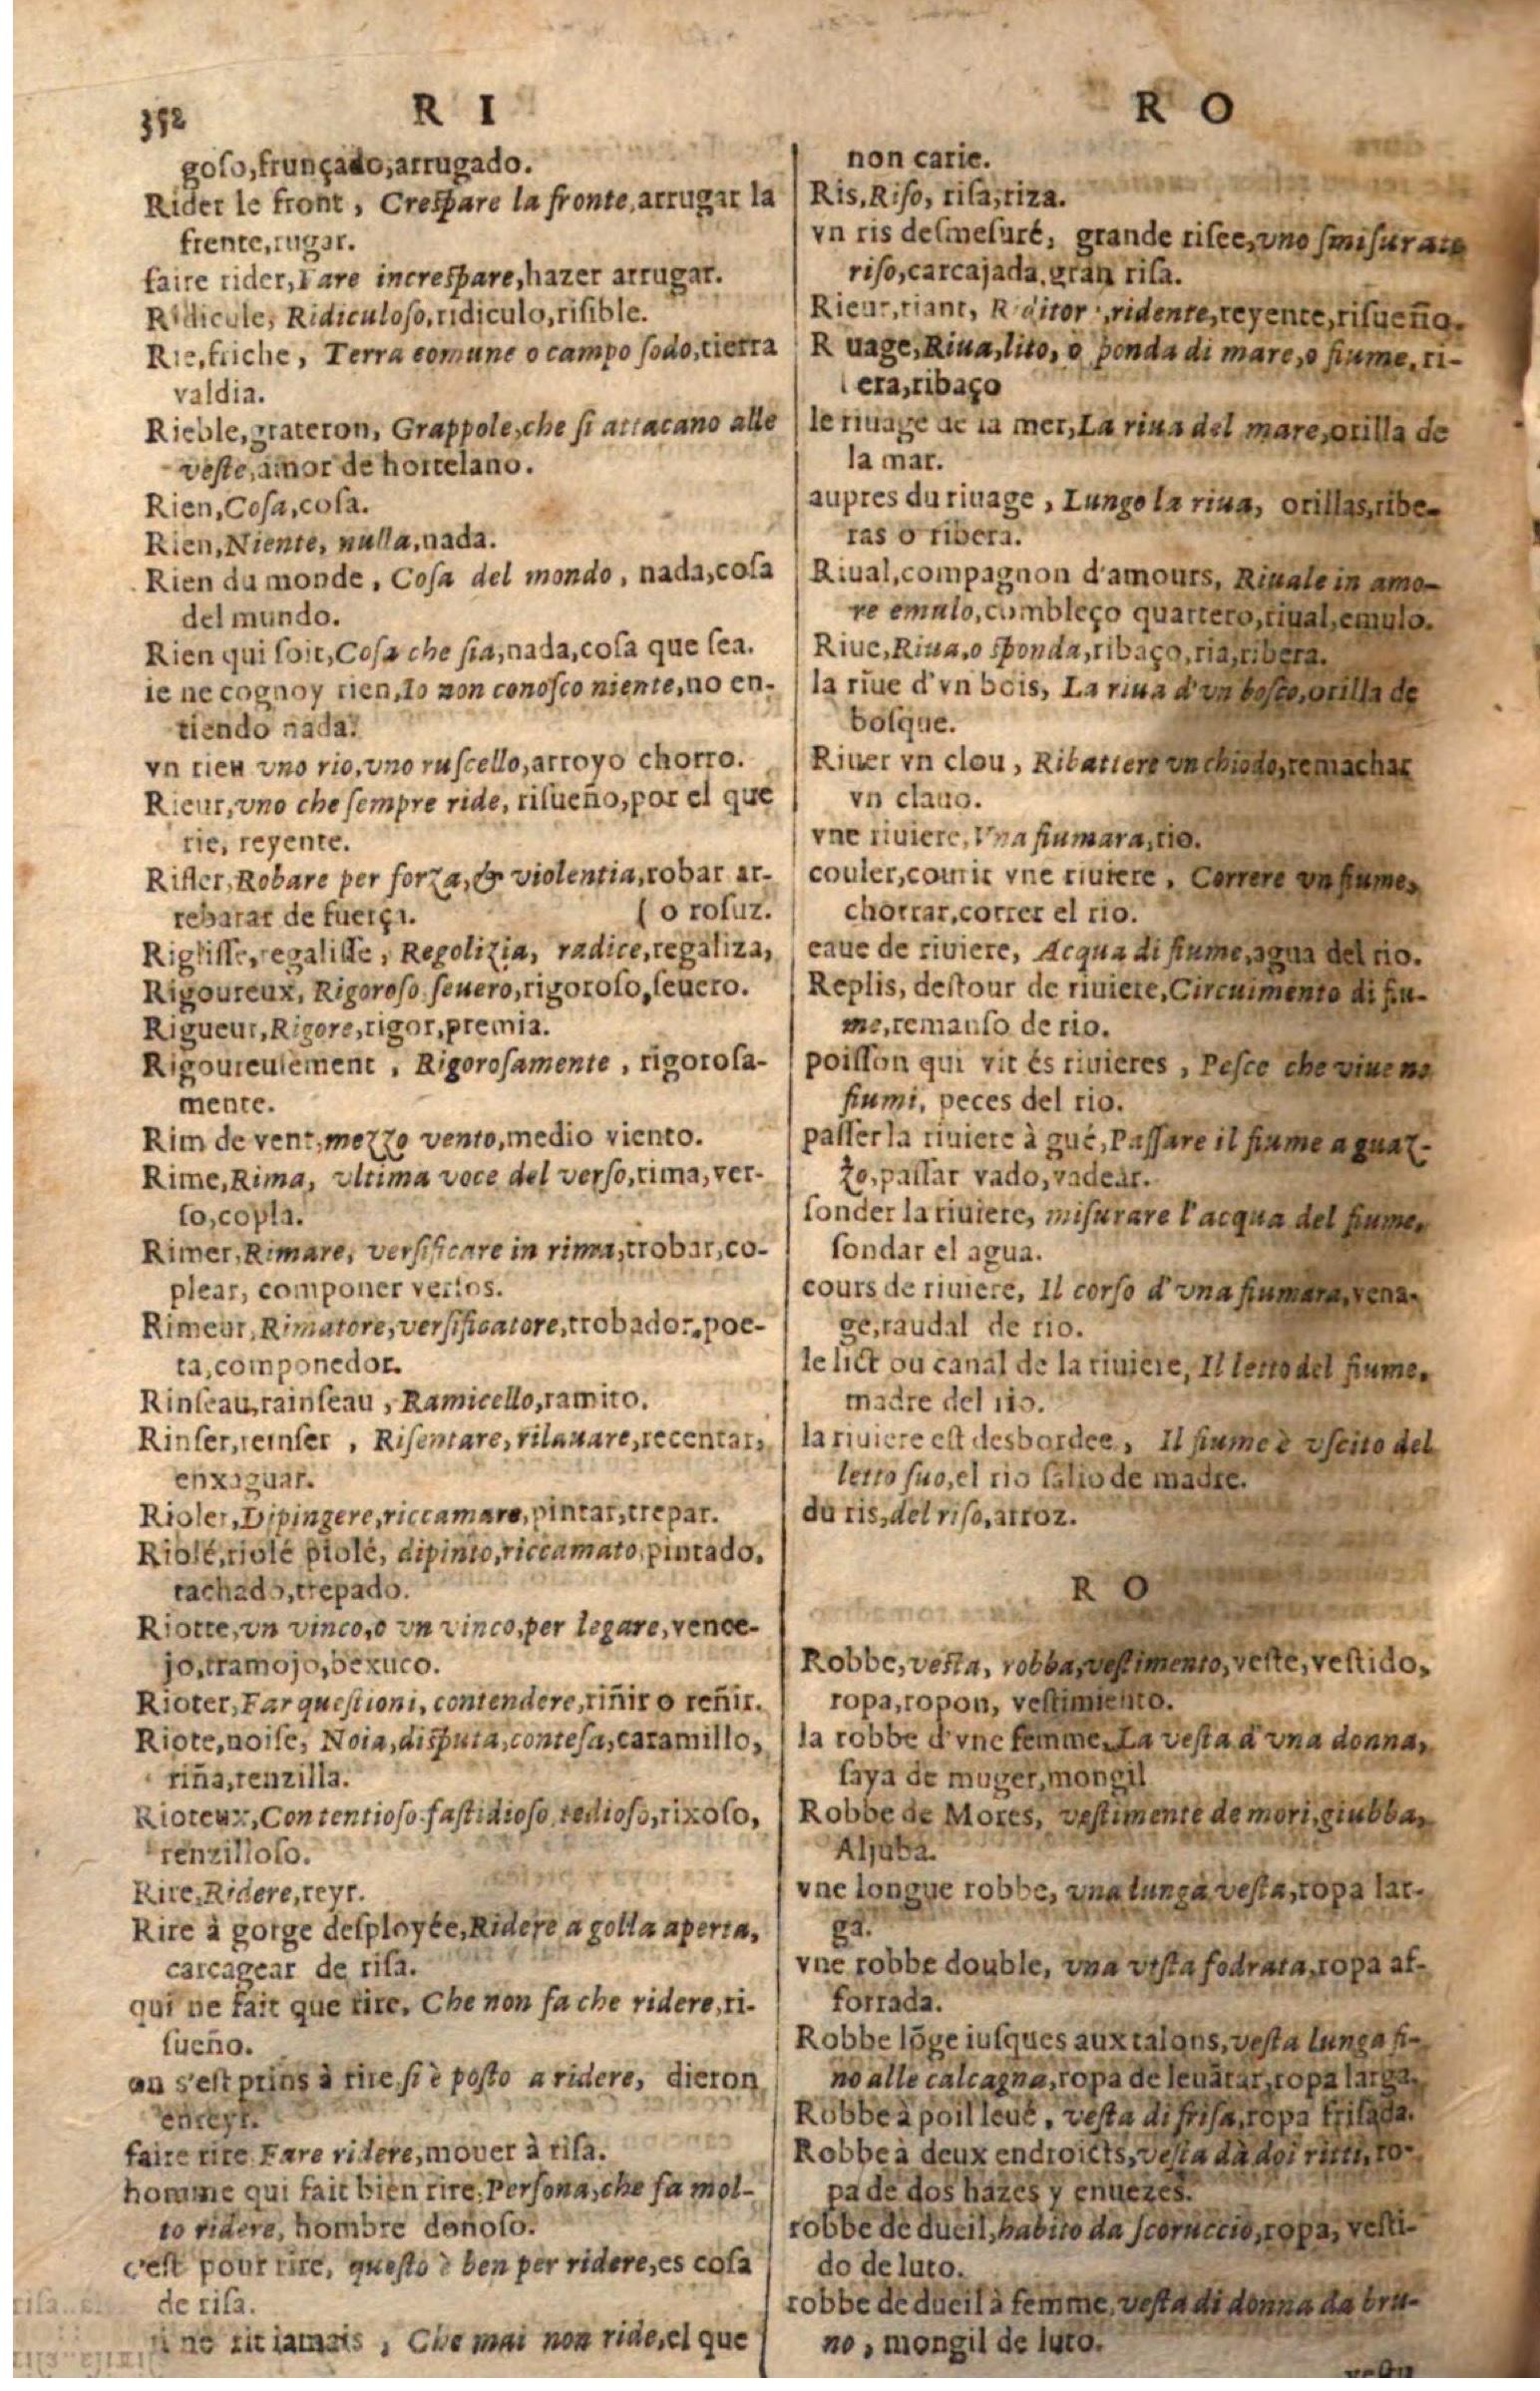 352
R I
goſo,frunçado,arrugado.
Rider le front, Creſpare la fronte,arrugar la
frente,rugar.
faire rider,Fare increſpare,hazer arrugar.
Ridicule, Ridiculoſo,ridiculo,riſible.
Rie,friche, Terra comune o campo ſodo,tierra
valdia.
Rieble,grateron, Grappole,che ſi attacano alle
veſte,amor de hortelano.
Rien,Coſa,coſa.
Rien,Niente, nulla,nada.
Rien du monde, Coſa del mondo, nada,coſa
del mundo.
Rien qui ſoit,Coſa che ſia,nada,coſa que ſea.
ie ne cognoy rien,Io non conoſco niente,no en-
tiendo nada.
vn rieu vno rio,vno ruſcello,arroyo chorro.
Rieur,vno che ſempre ride, riſueño,por el que
rie, reyente.
Rifler,Robare per forza,& violentia,robar ar-
rebatar de fuerça.
( o roſuz.
Rigliſſe,regaliſſe, Regolizia, radice,regaliza,
Rigoureux, Rigoroſo ſeuero,rigoroſo,ſeuero.
Rigueur,Rigore,rigor,premia.
Rigoureuſement, Rigoroſamente, rigoroſa-
mente.
Rim de vent,mezzo vento,medio viento.
Rime,Rima, vltima voce del verſo,rima,ver-
ſo,copla.
Rimer,Rimare, verſificare in rima,trobar,co-
plear, componer verſos.
Rimeur,Rimatore,verſificatore,trobador,poe-
ta,componedor.
Rinſeau,rainſeau, Ramicello,ramito.
Rinſer,reinſer, Riſentare,rilauare,recentar,
enxaguar.
Rioler,Dipingere,riccamare,pintar,trepar.
Riolé,riolé piolé, dipinto,riccamato,pintado,
tachado,trepado.
Riotte,vn vinco,o vn vinco,per legare,vence-
jo,tramojo,bexuco.
Rioter,Far queſtioni, contendere,riñir o reñir.
Riote,noiſe, Noia,diſputa,conteſa,caramillo,
riña,renzilla.
Rioteux,Contentioſo faſtidioſo tedioſo,rixoſo,
renzilloſo.
Rire,Ridere,reyr.
Rire à gorge deſployée,Ridere a golla aperta,
carcagear de riſa.
qui ne fait que rire, Che non fa che ridere,ri-
ſueño.
on s'eſt prins à rire,ſi è poſto a ridere, dieron
enreyr.
faire rire Fare ridere,mouer à riſa.
homme qui fait bien rire,Perſona,che fa mol-
to ridere, hombre donoſo.
c'eſt pour rire, queſto è ben per ridere,es coſa
de riſa.
ne rit iamais, Che mai non ride,el que
R O
non carie.
Ris,Riſo, riſa,riza.
vn ris deſmeſuré, grande riſee,vno ſmiſurato
riſo,carcajada,gran riſa.
Rieur,riant, Riditor,ridente,reyente,riſueño.
Riuage,Riua,lito, o ponda di mare,o fiume, ri-
era,ribaço
le riuage de la mer,La riua del mare,orilla de
la mar.
aupres du riuage, Lungo la riua, orillas,ribe-
ras o ribera.
Riual,compagnon d'amours, Riuale in amo-
re emulo,combleço quartero,riual,emulo.
Riue,Riua,o ſponda,ribaço,ria,ribera.
la riue d'vn bois, La riua d'vn boſco,orilla de
boſque.
Riuer vn clou, Ribattere vn chiodo,remachar
vn clauo.
vne riuiere,Vna fiumara,rio.
couler,courir vne riuiere, Correre vn fiume,
chorrar,correr el rio.
eaue de riuiere, Acqua di fiume,agua del rio.
Replis, deſtour de riuiere,Circuimento di fiu-
me,remanſo de rio.
poiſſon qui vit és riuieres, Peſce che viue ne
fiumi, peces del rio.
paſſer la riuiere à gué,Paſſare il fiume a guaz-
zo,paſſar vado,vadear.
ſonder la riuiere, miſurare l'acqua del fiume,
ſondar el agua.
cours de riuiere, Il corſo d'vna fiumara,vena-
ge,raudal de rio.
le lict ou canal de la riuiere, Il letto del fiume,
madre del rio.
la riuiere eſt desbordee, Il fiume è vſcito del
letto ſuo,el rio ſalio de madre.
du ris,del riſo,arroz.
R O
Robbe,veſta, robba,veſtimento,veſte,veſtido,
ropa,ropon, veſtimiento.
la robbe d'vne femme,La veſta d'vna donna,
ſaya de muger,mongil
Robbe de Mores, veſtimente de mori,giubba,
Aljuba.
vne longue robbe, vna lunga veſta,ropa lar-
ga.
vne robbe double, vna veſta fodrata,ropa af-
forrada.
Robbe lõge iuſques aux talons,veſta lunga fi-
no alle calcagna,ropa de leuãtar,ropa larga.
Robbe à poil leué, veſta di friſa,ropa friſada.
Robbe à deux endroicts,veſta da doi ritti,ro-
pa de dos hazes y enuezes.
robbe de dueil,habito da ſcoruccio,ropa, veſti-
do de luto.
robbe de dueil à femme,veſta di donna da bru-
no, mongil de luto.